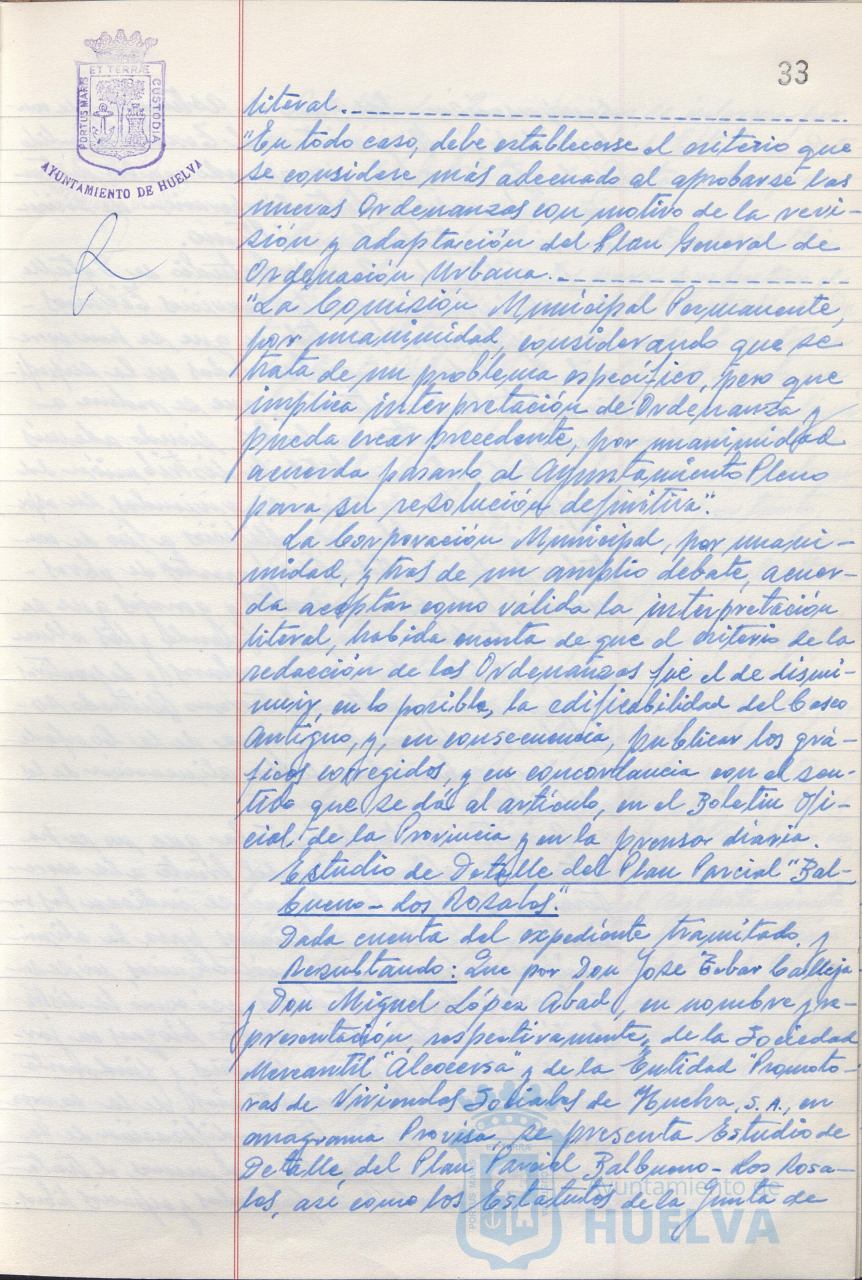 33
ET TERRAE
PORTUS MARIS
CUSTODIA
AYUNTAMIENTO DE HUELVA
literal.
"En todo caso, debe establecerse el criterio que
se considere más adecuado al aprobarse las
nuevas Ordenanzas con motivo de la revi-
sión y adaptación del Plan General de
Ordenación Urbana.
"La Comisión Municipal Permanente,
por unanimidad, considerando que se
trata de un problema específico, pero que
implica interpretación de Ordenanza y
pueda crear precedente, por unanimidad
acuerda pasarlo al Ayuntamiento Pleno
para su resolución definitiva".
La Corporación Municipal, por unani-
midad, y tras de un amplio debate, acuer-
da aceptar como válida la interpretación
literal, habida cuenta de que el criterio de la
redacción de las Ordenanzas fué el de dismi-
nuir, en lo posible, la edificabilidad del Casco
Antiguo, y, en consecuencia, publicar los grá-
ficos corregidos, y en concordancia con el sen-
tido que se dá al artículo, en el Boletín Ofi-
cial de la Provincia y en la prensa diaria.
Estudio de Detalle del Plan Parcial "Bal-
bueno - Los Rosales".
Dada cuenta del expediente tramitado, y
Resultando: Que por Don José Calleja
y Don Miguel López Abad, en nombre y re-
presentación, respectivamente, de la Sociedad
Mercantil "Alcocersa" y de la Entidad "Promoto-
ras de Viviendas Sociales de Huelva, S.A., en
anagrama Provisa se presenta Estudio de
Detalle del Plan Parcial, Balbueno - Los Rosa-
les, así como los Estatutos de la Junta de
Ayuntamiento de
HUELVA